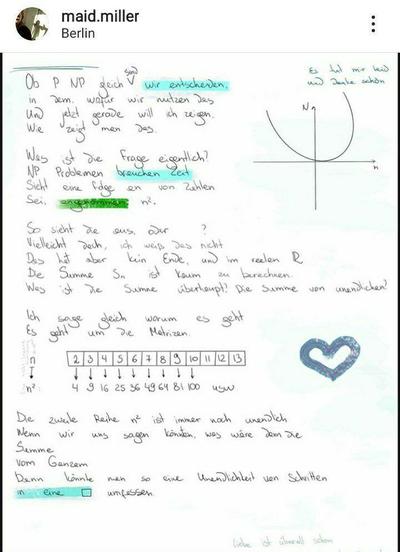 maid.miller
Berlin
Es tut mir leid
und danke schön
Ob P NP gleich sind wir entscheiden,
in dem, wofür wir nutzen das
Und jetzt gerade will ich zeigen,
Wie zeigt man das.
N
n
Was ist die Frage eigentlich?
NP Problemen brauchen Zeit
Sieht eine Folge an von Zahlen
Sei, angekommen n².
So sieht die aus, oder ?
Vielleicht doch, ich weiß das nicht
Das hat aber kein Ende, und im reelen R
Die Summe Sn ist kaum zu berechnen.
Was ist die Summe überhaupt? Die Summe von unendlichen?
Ich sage gleich worum es geht
Es geht um die Matrizen.
n 2 3 4 5 6 7 8 9 10 11 12 13
n² 4 9 16 25 36 49 64 81 100 usw
Die zweite Reihe n² ist immer noch unendlich
Wenn wir uns sagen könnten, was wäre denn die
Summe
vom Ganzem
Dann könnte man so eine Unendlichkeit von Schritten
in eine □ umfassen.
Liebe ist überall schön